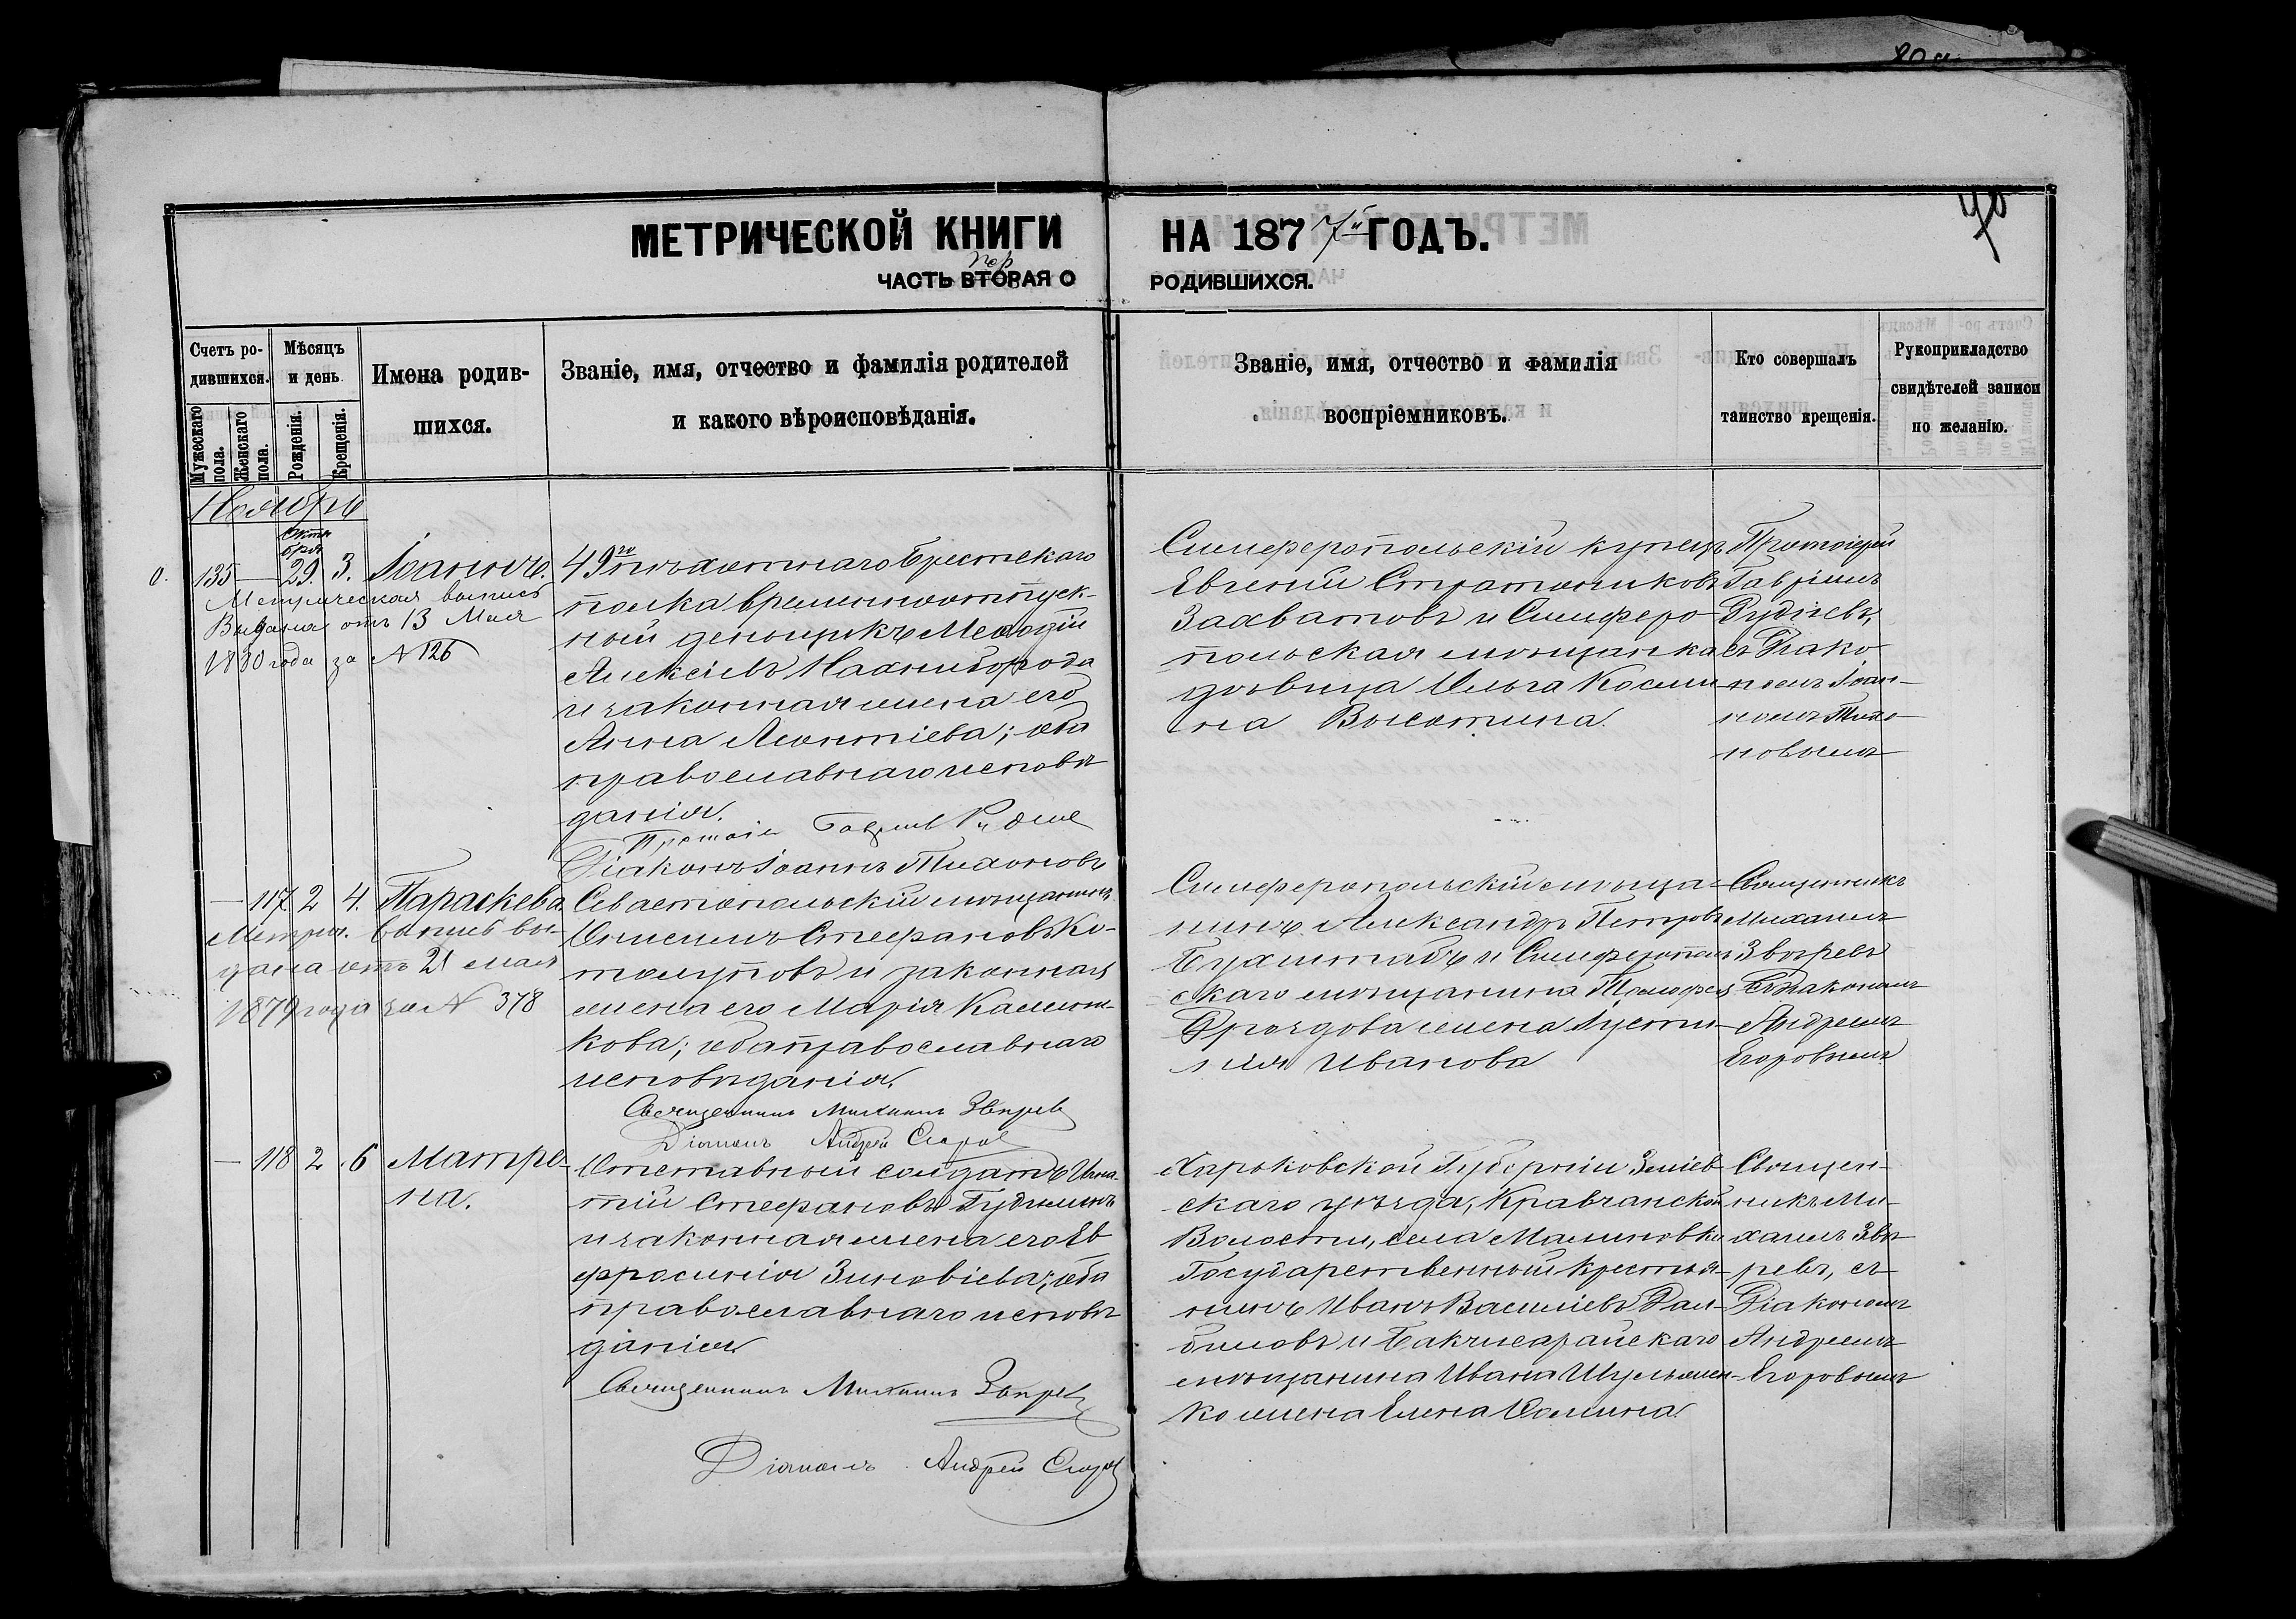 МЕТРИЧЕСКОЙ КНИГИ НА 1877й ГОДЪ.
ЧАСТЬ ВТОРАЯ О РОДИВШИХСЯ.
пер
40
Счетъ ро-
дившихся.
Мужескаго пола.
Женскаго пола.
Мѣсяцъ
и день
Рожденія.
Крещенія.
Имена родив-
шихся.
Званіе, имя, отчество и фамилія родителей
и какого вѣроисповѣданія.
Званіе, имя, отчество и фамилія
воспріемниковъ.
Кто совершалъ
таинство крещенія.
Рукоприкладство
свидѣтелей записи
по желанію.
Ноябрь
Октя
бря
135 — 29. 3. Іоаннъ.
Метрическая выпись
Выдана отъ 13 Мая
1880 года за № 126
49го пѣхотнаго Брестскаго
полка временноотпуск-
ной деньщикъ Меѳодій
Алексіевъ
и законная жена его
Анна Леонтіева; оба
православнаго исповѣ
данія.
Діаконъ Іоаннъ Тихоновъ
Симферопольскій купецъ
Евгеній Стратониковъ
Захватовъ и Симферо-
польская мѣщанка
дѣвица Ольга Косми-
на
Протоіерей
Гавріилъ
Рудневъ,
съ Діако
номъ Іоан-
номъ Тихо-
новымъ
— 117 2 4. Параскева
Метрич. выпись вы-
дана отъ 21 мая
1879 года за № 378
Севастопольскій мѣщанинъ
Онисимъ Стефановъ Ко-
и законная
жена его Марія
кова; оба православнаго
исповѣданія.
Священникъ Михаилъ Звѣревъ
Діаконъ Андрей Егоровъ
Симферопольскій мѣща-
нинъ Александръ Петровъ
Бухштабъ и Симферополь
скаго мѣщанина Тимоѳея
Дроздова жена Іусти-
нія Иванова
Священникъ
Михаилъ
Звѣревъ
съ Діакономъ
Андреемъ
Егоровымъ
— 118 2 6 Матро-
на.
Отставный солдатъ Игна-
тій Стефановъ
и законная жена его Ев
фросинія Зиновіева; оба
православнаго исповѣ
данія
Священникъ Михаилъ Звѣревъ
Діаконъ Андрей Егоровъ
Харьковской Губерніи Зміев-
скаго уѣзда, Кравчанской
Волости, села Малиновки
Государственный крестья-
нинъ Иванъ Василіевъ Дан-
биловъ и Бакчисарайскаго
мѣщанина Ивана Шульжен-
ко жена Елена Ѳомина
Священ-
никъ Ми-
хаилъ Звѣ-
ревъ, съ
Діакономъ
Андреемъ
Егоровымъ